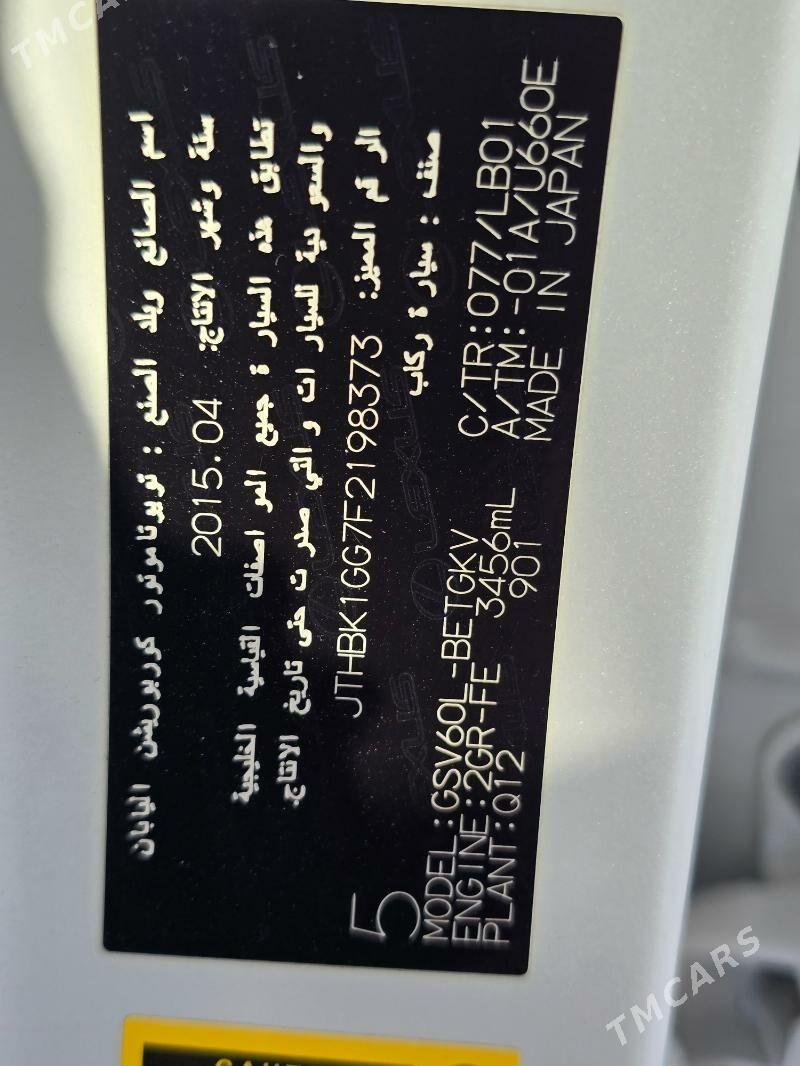 TMCARS
اسم الصانع وبلد الصنع : تويوتا موتور كوربوريشن اليابان
سنة وشهر الانتاج: 2015.04
تطابق هذه السيارة جميع المواصفات القياسية الخليجية
والسعودية للسيارات والتي صدرت حتى تاريخ الانتاج.
الرقم المميز: JTHBK1GG7F2198373
صنف : سيارة ركاب
5
MODEL:GSV60L-BETGKV C/TR:077/LB01
ENGINE:2GR-FE 3456mL A/TM:-01A/U660E
PLANT:Q12 901 MADE IN JAPAN
LEXUS
TMCARS